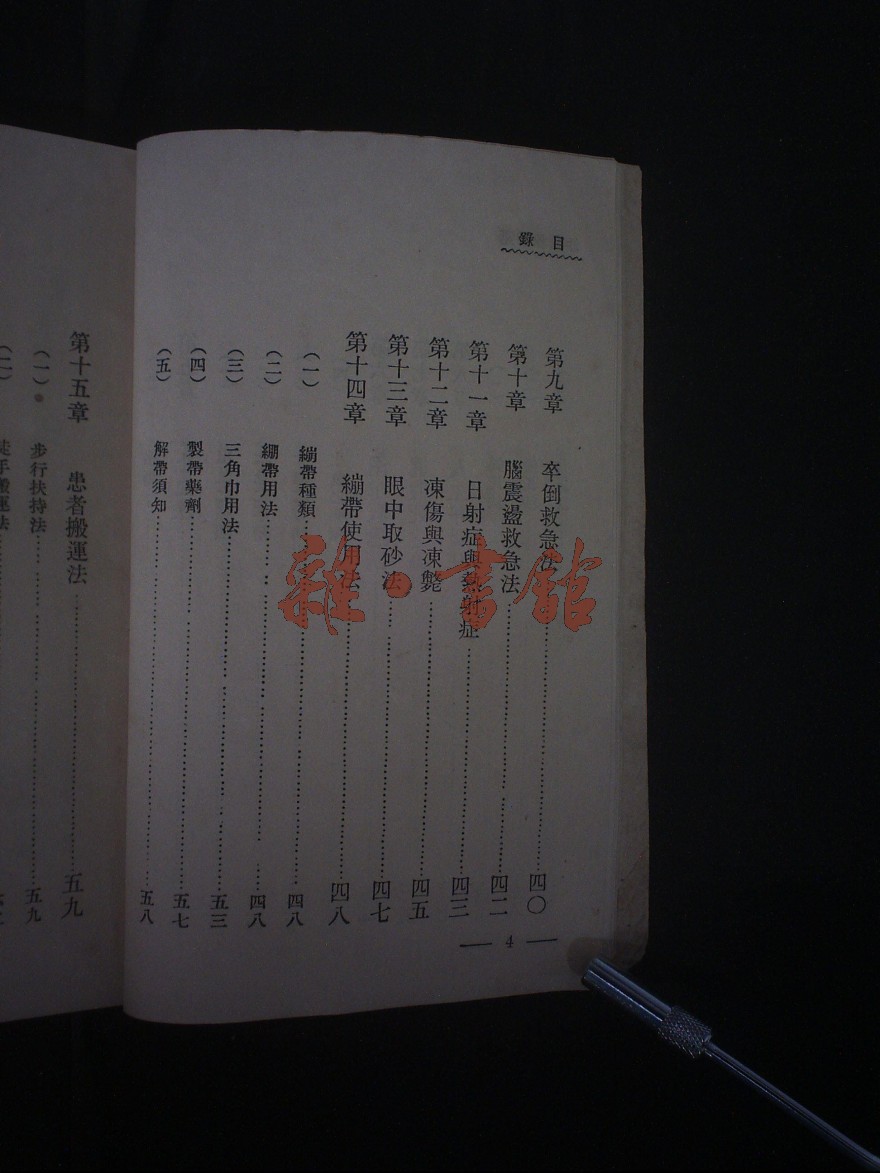 目錄
第九章 卒倒救急法……四〇
第十章 腦震盪救急法……四二
第十一章 日射症與熱射症……四三
第十二章 凍傷與凍斃……四五
第十三章 眼中取砂法……四七
第十四章 繃帶使用法……四八
(一) 繃帶種類……四八
(二) 繃帶用法……四八
(三) 三角巾用法……五三
(四) 製帶藥劑……五七
(五) 解帶須知……五八
— 4 —
第十五章 患者搬運法……五九
(一) 步行扶持法……五九
雜·書館